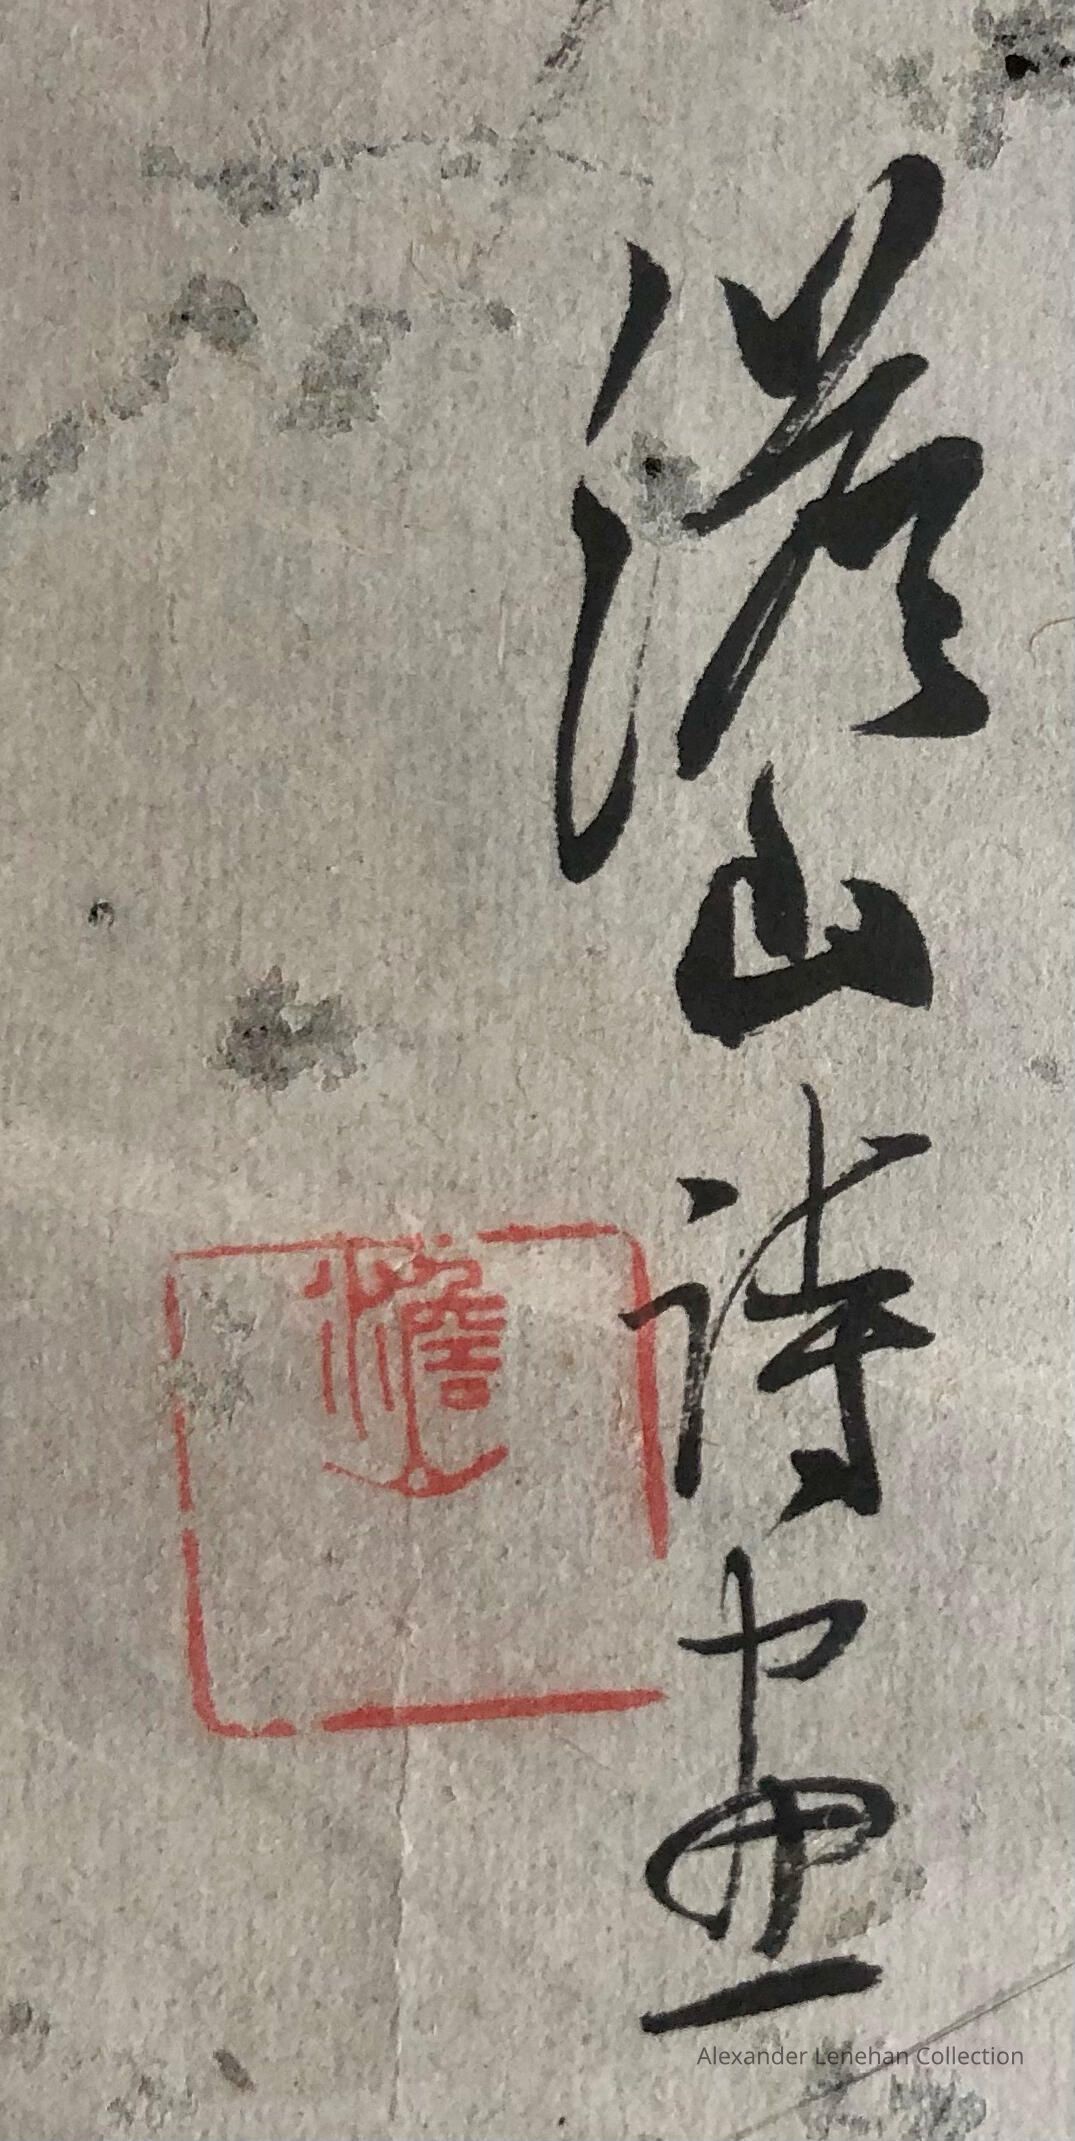 澹山詩画
澹山
Alexander Lenehan Collection